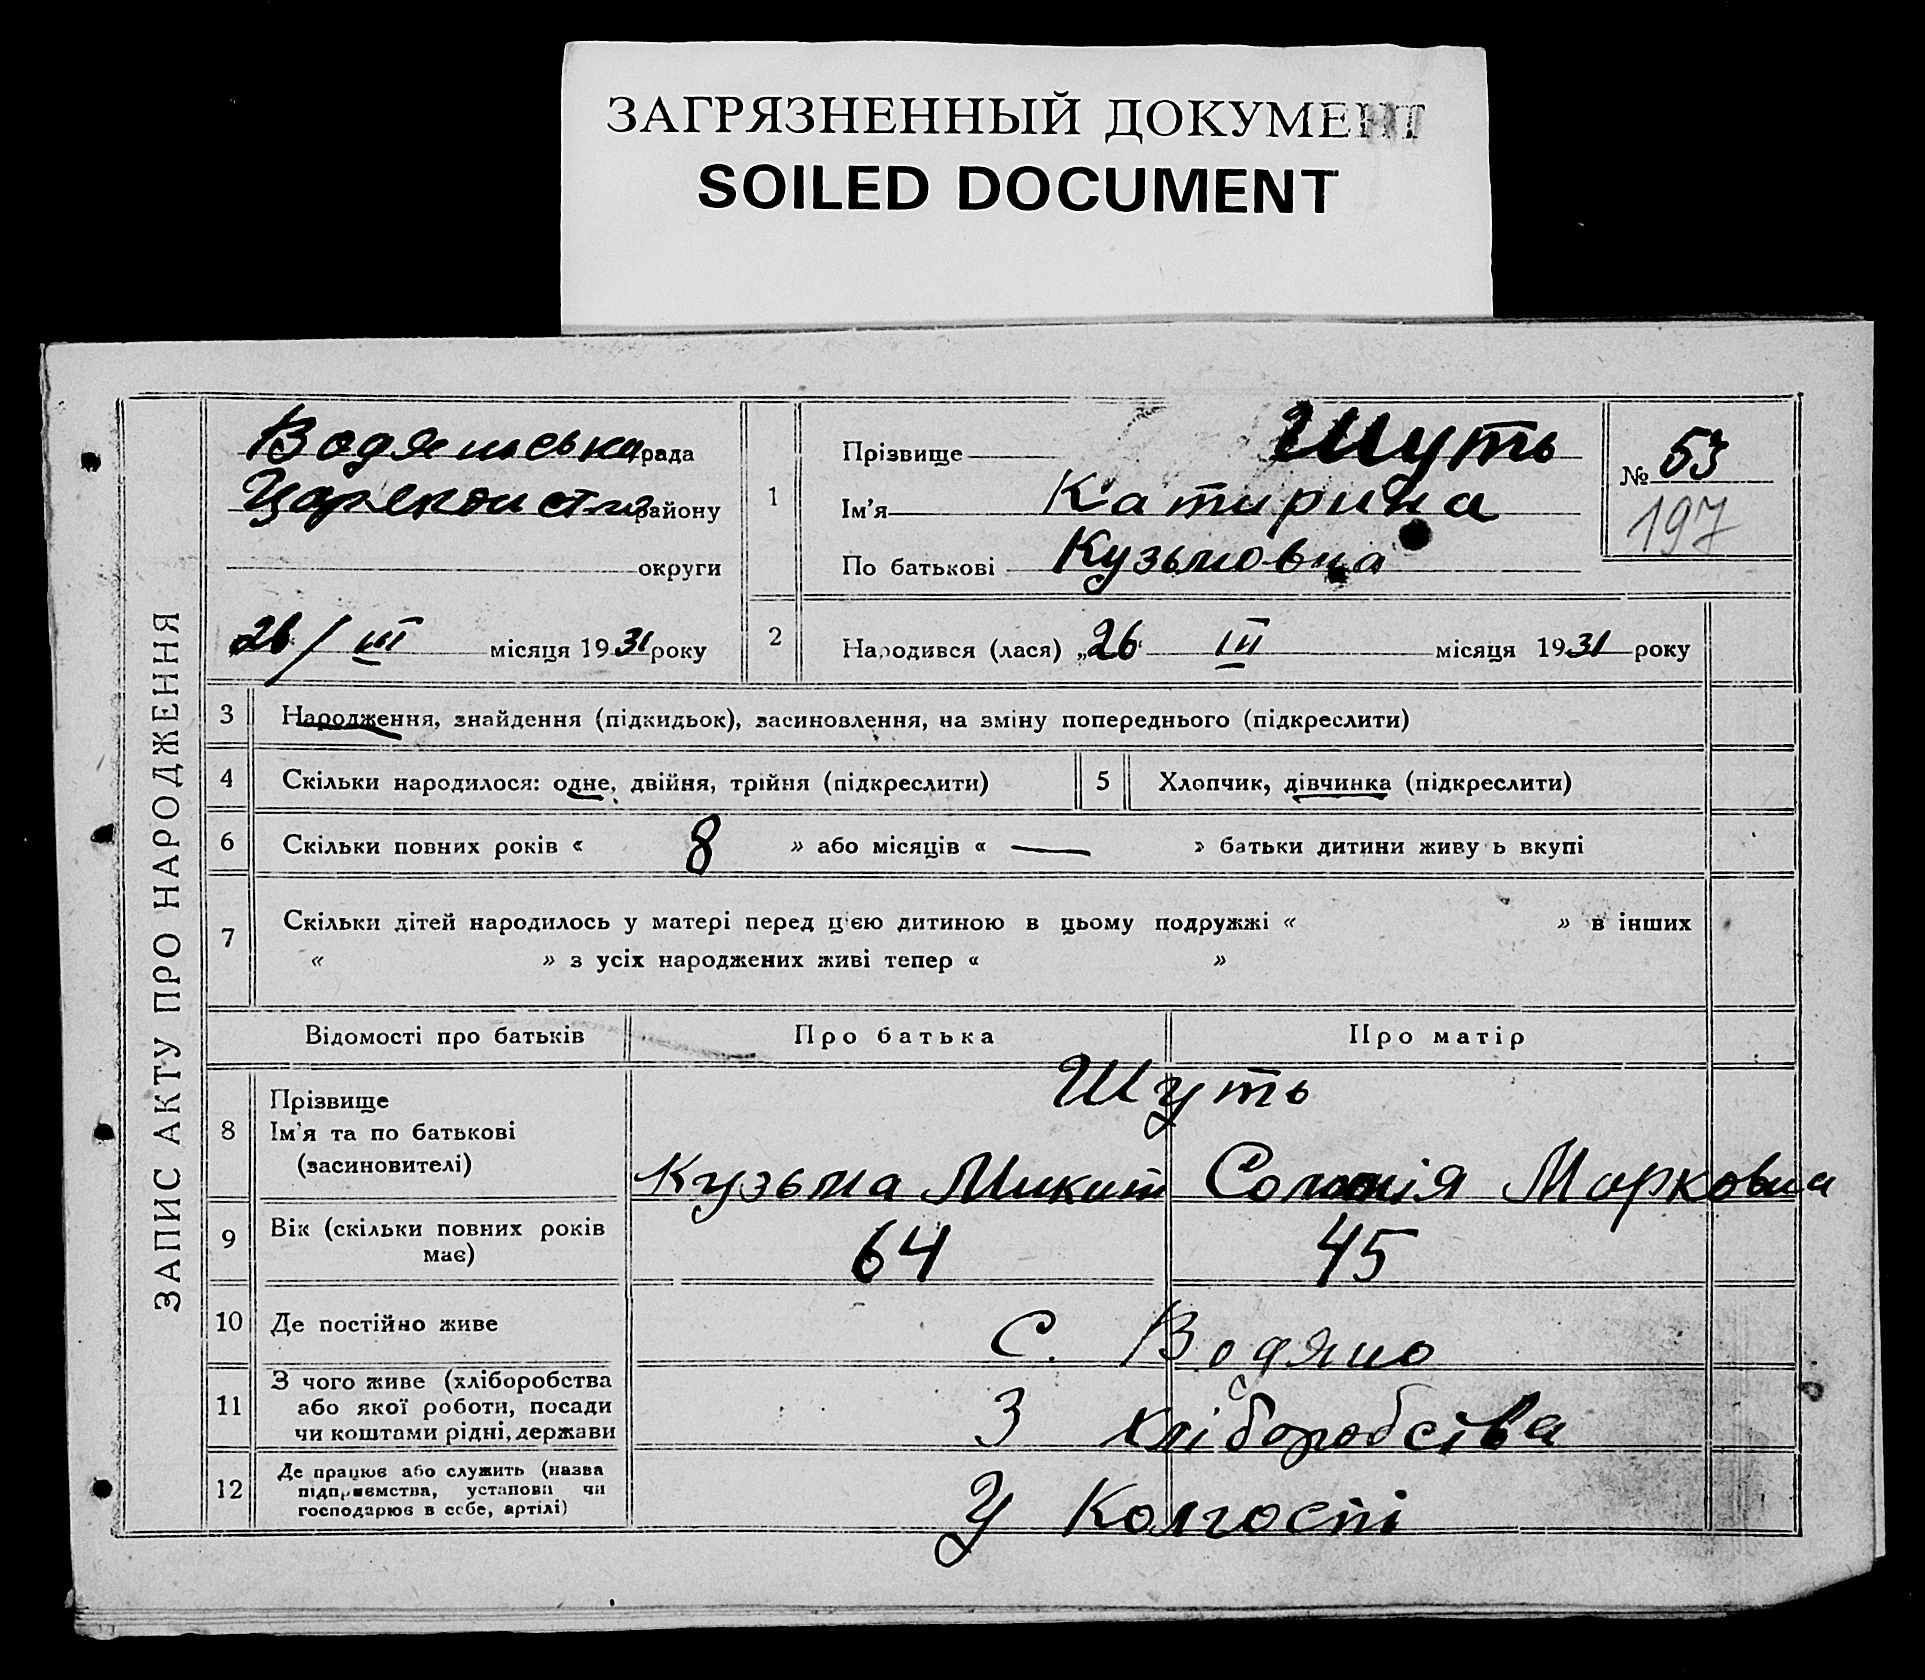 ЗАГРЯЗНЕННЫЙ ДОКУМЕНТ
SOILED DOCUMENT
ЗАПИС АКТУ ПРО НАРОДЖЕННЯ
Водянська рада
району
округи
26/III місяця 1931 року
1
Прізвище Шуть
Ім'я Катирина
По батькові Кузьмовна
№ 53
197
2 Народився (лася) „26 III місяця 1931 року
3 Народження, знайдення (підкидьок), засиновлення, на зміну попереднього (підкреслити)
4 Скільки народилося: одне, двійня, трійня (підкреслити)
5 Хлопчик, дівчинка (підкреслити)
6 Скільки повних років « 8 » або місяців « — » батьки дитини живуть вкупі
7 Скільки дітей народилось у матері перед цією дитиною в цьому подружжі « » в інших
« » з усіх народжених живі тепер « »
Відомості про батьків Про батька Про матір
8 Прізвище
Ім'я та по батькові
(засиновителі)
Шуть
Кузьма Микит Марковна
9 Вік (скільки повних років
має)
64 45
10 Де постійно живе С. Водяно
11 З чого живе (хліборобства
або якої роботи, посади
чи коштами рідні, держави
З хліборобства
12 Де працює або служить (назва
підприємства, установи чи
господарює в себе, артілі)
У Колгоспі